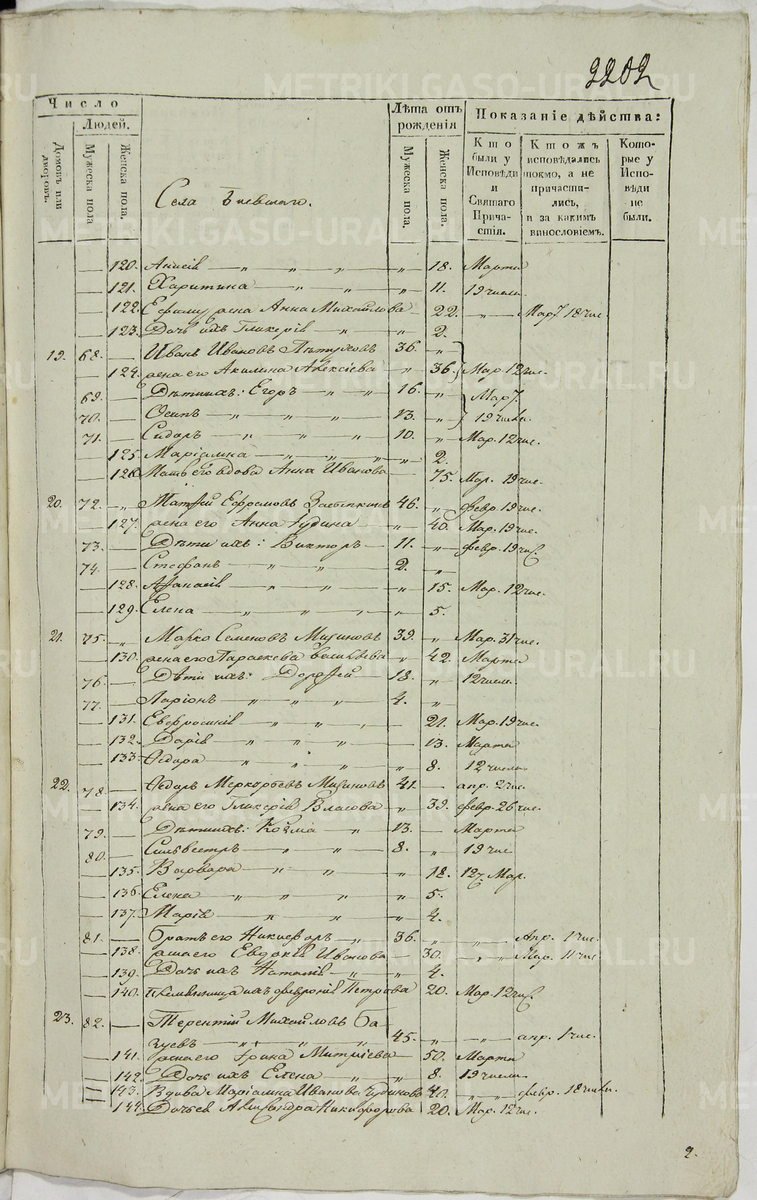 2202
Число
Людей.
Домовъ или дворовъ.
Мужеска пола
Женска пола.
Лѣта отъ рожденія
Мужеска пола.
Женска пола.
Показаніе дѣйства:
Кто были у Исповѣди и Святаго Причастія.
Ктожъ исповѣдались токмо, а не причастились, и за какимъ винословіемъ.
Которые у Исповѣди не были.
Села
120. Анисія — „ „ „ — „ — 18. Марта
121. Харитина — „ „ — „ — 11. 19 числа
122. Ефиму жена Анна Михайлова — 22. — „ — Мар. 18 чис.
123. Дочь ихъ Гликерія — „ „ — 2.
19. 68. — Иванъ Ивановъ 36. — „
124. жена его Акилина Алексіева — „ — 36. Мар. 12 чис.
69. — Дѣти ихъ: Егоръ — „ „ — 16. — „ Мар.
70. — Осипъ — „ „ — 13. — „ 19 числа
71. — Сидоръ — „ „ „ — 10. — „ Мар. 12 чис.
125. Маріамна — „ „ „ — 2.
126. Мать его вдова Анна Иванова — 75. Мар. 19 чис.
20. 72. — „ Матѳей Ефремовъ 46. — „ февр. 19 чис.
127. жена его Анна Іудина — „ — 40. Мар. 19 чис.
73. — Дѣти ихъ: Викторъ — 11. — „ февр. 19 чис.
74. — Стефанъ — „ „ — 2. — „
128. Аѳанасія — „ „ — „ — 15. Мар. 12 чис.
129. Елена — „ „ „ — „ — 5.
21. 75. — „ Марко Семеновъ Мизиновъ 39. — „ Мар. 31 чис.
130. жена его Параскева Васильева — „ — 42. Марта
76. — Дѣти ихъ: Дороѳей 18. — „ 12 числа
77. — Ларіонъ — „ „ „ — 4. — „
131. Евфросинія — „ „ „ — 21. Мар. 19 чис.
132. Дарія — „ „ „ — 13. Марта
133. Ѳедора — „ „ „ — 8. 12 числа
22. 78. — Ѳедоръ Меркурьевъ Мизиновъ 41. — апр. 2 чис.
134. жена его Гликерія Власова — „ — 39. февр. 26 чис.
79. — Дѣти ихъ: Козма — „ 13. — Марта
80. — Сильвестръ — „ „ — 8. — „ 19 чис
135. Варвара — „ „ — „ — 18. 12 ч. Мар.
136. Елена — „ „ „ — „ — 5.
137. Марія — „ „ — „ — 4.
81. — Братъ его Никифоръ — „ 36. — „ — „ — Апр. 1 чис.
138. жена его Евдокія Иванова — 30. — „ — Мар. 11 чис.
139. Дочь ихъ Наталія — „ — „ — 4.
140. Племянница ихъ Февронія Петрова 20. Мар. 12 чис.
23. 82. — Терентій Михайловъ Ба-
зуевъ — „ „ „ — 45. — „ — „ — апр. 1 чис.
141. жена его Ирина Митріева — 50. Марта
142. Дочь ихъ Елена — „ — „ — 8. 19 числа
143. Вдова Маріамна Иванова Чудинова 40. — „ — февр. 18 числ.
144. Дочь ея Александра Никифорова 20. Мар. 12 чис.
METRIKI.GASO-URAL.RU